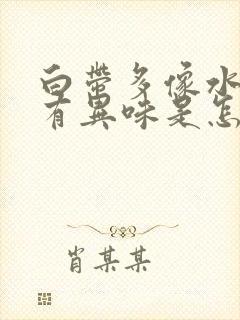 白带多像水
有异味是怎
肖某某